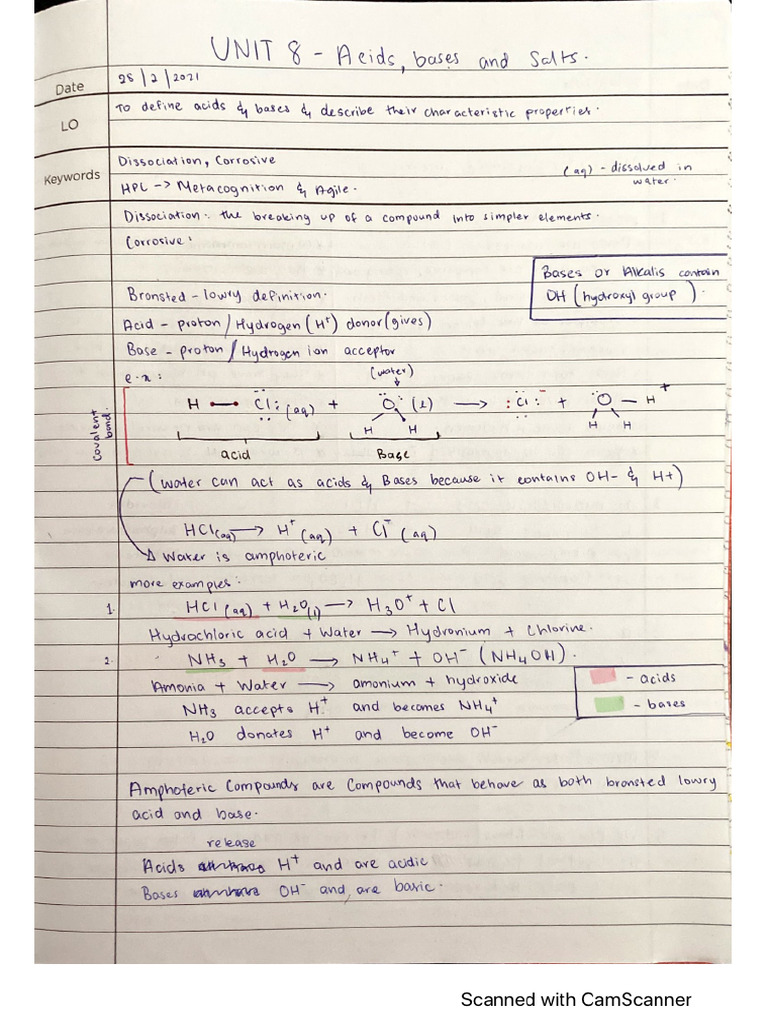 UNIT 8 - Acids, bases and Salts.
Date 28/2/2021
LO To define acids & bases & describe their characteristic properties.
Keywords Dissociation, Corrosive
(aq) - dissolved in water.
HPL -> Metacognition & Agile.
Dissociation: the breaking up of a compound into simpler elements.
Corrosive:
Bases or Alkalis contain
OH (hydroxyl group).
Bronsted - lowry definition.
Acid - proton / Hydrogen (H⁺) donor (gives)
Base - proton / Hydrogen ion acceptor
e.x:
(water)
Covalent bond.
H — Cl: (aq) + O (l) → :Cl:⁻ + O — H ⁺
H H H H
acid Base
(water can act as acids & Bases because it contains OH- & H+)
HCl(aq) → H⁺ (aq) + Cl⁻ (aq)
Water is amphoteric
more examples:
1. HCl (aq) + H2O(l) → H3O⁺ + Cl
Hydrochloric acid + Water → Hydronium + Chlorine.
2. NH3 + H2O → NH4⁺ + OH⁻ (NH4OH).
Amonia + Water → amonium + hydroxide
- acids
- bases
NH3 accepts H⁺ and becomes NH4⁺
H2O donates H⁺ and become OH⁻
Amphoteric Compounds are Compounds that behave as both bronsted lowry
acid and base.
release
Acids H⁺ and are acidic
Bases OH⁻ and are basic.
Scanned with CamScanner